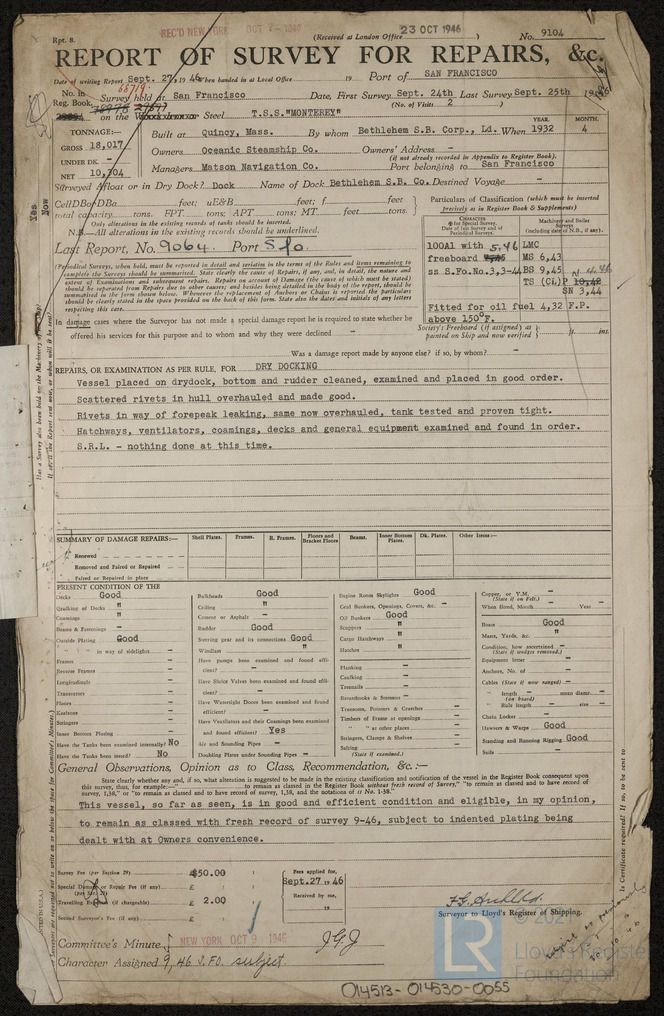 Rpt. 8.
REC'D NEW YORK OCT 7 - 1946
(Received at London Office 23 OCT 1946 )
No. 9104
REPORT OF SURVEY FOR REPAIRS, &c.
Date of writing Report Sept. 27, 19 46 When handed in at Local Office 19 Port of SAN FRANCISCO
No. in Reg. Book. 68719
Survey held at San Francisco Date, First Survey Sept. 24th Last Survey Sept. 25th 1946
(No. of Visits 2 )
on the Steel T.S.S. "MONTEREY"
TONNAGE:—
GROSS 18,017
UNDER DK. -
NET 10,304
Built at Quincy, Mass. By whom Bethlehem S.B. Corp., Ld. When YEAR. 1932 MONTH. 4
Owners Oceanic Steamship Co. Owners' Address -
(if not already recorded in Appendix to Register Book).
Managers Matson Navigation Co. Port belonging to San Francisco
Surveyed Afloat or in Dry Dock? Dock Name of Dock Bethlehem S.B. Co. Destined Voyage -
CellDBorDBa feet; uE&B feet; f feet
total capacity tons. FPT tons; APT tons; MT feet tons.
Only alterations in the existing records of tanks should be inserted.
N.B.—All alterations in the existing records should be underlined.
Last Report, No. 9064 Port Sfo.
Particulars of Classification (which must be inserted precisely as in Register Book & Supplements)
100A1 with 5,46
freeboard
ss S.Fo.No.3,3-44
LMC
MS 6,43
BS 9,45
TS (CL)P
SN 3,44
Fitted for oil fuel 4,32 F.P.
above 150°F.
Society's Freeboard (if assigned) as painted on Ship and now verified ft. ins.
(Periodical Surveys, when held, must be reported in detail and seriatim in the terms of the Rules and items remaining to
complete the Surveys should be summarised. State clearly the cause of Repairs, if any, and, in detail, the nature and
extent of Examinations and subsequent repairs. Repairs on account of Damage (the cause of which must be stated)
should be separated from Repairs due to other causes; and besides being detailed in the body of the report, should be
summarised in the form shown below.
respecting this case.
In damage cases where the Surveyor has not made a special damage report he is required to state whether he
offered his services for this purpose and to whom and why they were declined -
Was a damage report made by anyone else? if so, by whom? -
REPAIRS, OR EXAMINATION AS PER RULE, FOR DRY DOCKING
Vessel placed on drydock, bottom and rudder cleaned, examined and placed in good order.
Scattered rivets in hull overhauled and made good.
Rivets in way of forepeak leaking, same now overhauled, tank tested and proven tight.
Hatchways, ventilators, coamings, decks and general equipment examined and found in order.
S.R.L. - nothing done at this time.
SUMMARY OF DAMAGE REPAIRS:—
Shell Plates. Frames. R. Frames. Floors and Bracket Floors Beams. Inner Bottom Plates. Dk. Plates. Other Items:—
Renewed
Removed and Faired or Repaired
Faired or Repaired in place
PRESENT CONDITION OF THE
Decks Good
Caulking of Decks "
Coamings "
Beams & Fastenings -
Outside Plating Good
" " in way of sidelights -
Frames -
Reverse Frames -
Longitudinals -
Transverses -
Floors -
Keelsons -
Stringers -
Inner Bottom Plating -
Have the Tanks been examined internally? No
Have the Tanks been tested? No
Bulkheads Good
Ceiling "
Cement or Asphalt -
Rudder Good
Steering gear and its connections Good
Windlass "
Have pumps been examined and found efficient? -
Have Sluice Valves been examined and found efficient? -
Have Watertight Doors been examined and found efficient? -
Have Ventilators and their Coamings been examined and found efficient? Yes
Air and Sounding Pipes -
Doubling Plates under Sounding Pipes -
Engine Room Skylights Good
Coal Bunkers, Openings, Covers, &c. -
Oil Bunkers Good
Scuppers "
Cargo Hatchways "
Hatches "
Planking -
Caulking -
Treenails -
Breasthooks & Stemson -
Transoms, Pointers & Crutches -
Timbers of Frame at openings -
" " at other places -
Stringers, Clamps & Shelves -
Salting -
(State if examined.)
Copper, or Y.M. -
(State if on Felt.)
When fitted, Month - Year -
Boats Good
Masts, Yards, &c. "
Condition, how ascertained -
(State if wedges removed.)
Equipment letter -
Anchors, No. of -
Cables (State if now ranged) -
" length - mean diamr. -
(on board)
" Rule length - size -
Chain Locker -
Hawsers & Warps Good
Standing and Running Rigging Good
Sails -
General Observations, Opinion as to Class, Recommendation, &c.:—
State clearly whether any and, if so, what alteration is suggested to be made in the existing classification and notification of the vessel in the Register Book consequent upon
this survey, thus, for example:—" to remain as classed in the Register Book without fresh record of Survey," "to remain as classed and to have record of
survey, 1,38," or "to remain as classed and to have record of survey, 1,38, and the notations of ss No. 1-38."
This vessel, so far as seen, is in good and efficient condition and eligible, in my opinion,
to remain as classed with fresh record of survey 9-46, subject to indented plating being
dealt with at Owners convenience.
Survey Fee (per Section 29) $50.00
Special Damage or Repair Fee (if any) £
(per Sec. 29)
Travelling Expenses (if chargeable) £ 2.00
Second Surveyor's Fee (if any) £
Fees applied for, Sept. 27 19 46
Received by me, 19
Surveyor to Lloyd's Register of Shipping.
Committee's Minute NEW YORK OCT 9 1946
Character Assigned 9,46 S.FO. subject.
JGJ
© 2021
LR
Lloyd's Register
Foundation
014513-014530-0055
Yes
Now